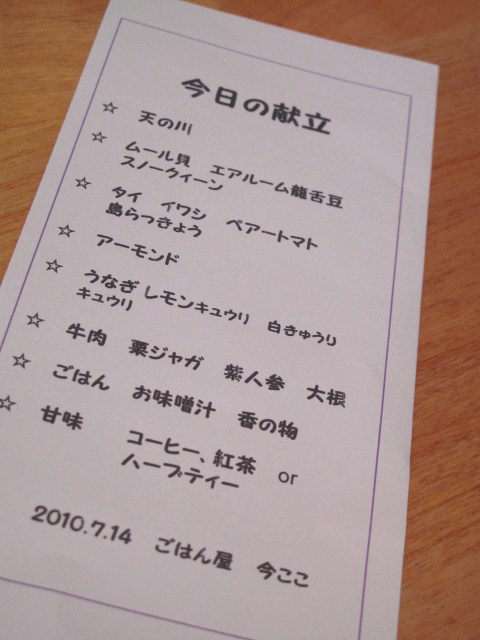 今日の献立
☆ 天の川
☆ ムール貝 エアルーム龍舌豆
スノークィーン
☆ タイ イワシ ペアートマト
島らっきょう
☆ アーモンド
☆ うなぎ レモンキュウリ 白きゅうり
キュウリ
☆ 牛肉 栗ジャガ 紫人参 大根
☆ ごはん お味噌汁 香の物
☆ 甘味 コーヒー、紅茶 or
ハーブティー
2010.7.14 ごはん屋 今ここ